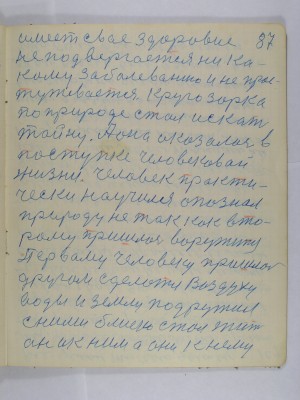 имеет свае здоровие 87
не подвергается ни ка-
кому заболеванию и не про-
стуживается. Кругозорка
по природе стал искать
тайну. А она аказалася в
поступке человековай
жизни. Человек практи-
чески научился опознал
природу не так как вто-
рому пришлося
Первому человеку пришлося
другом сделатся Воздуху
воды и земли подружил
с ними близко стал жит
он ак ним а они к нему